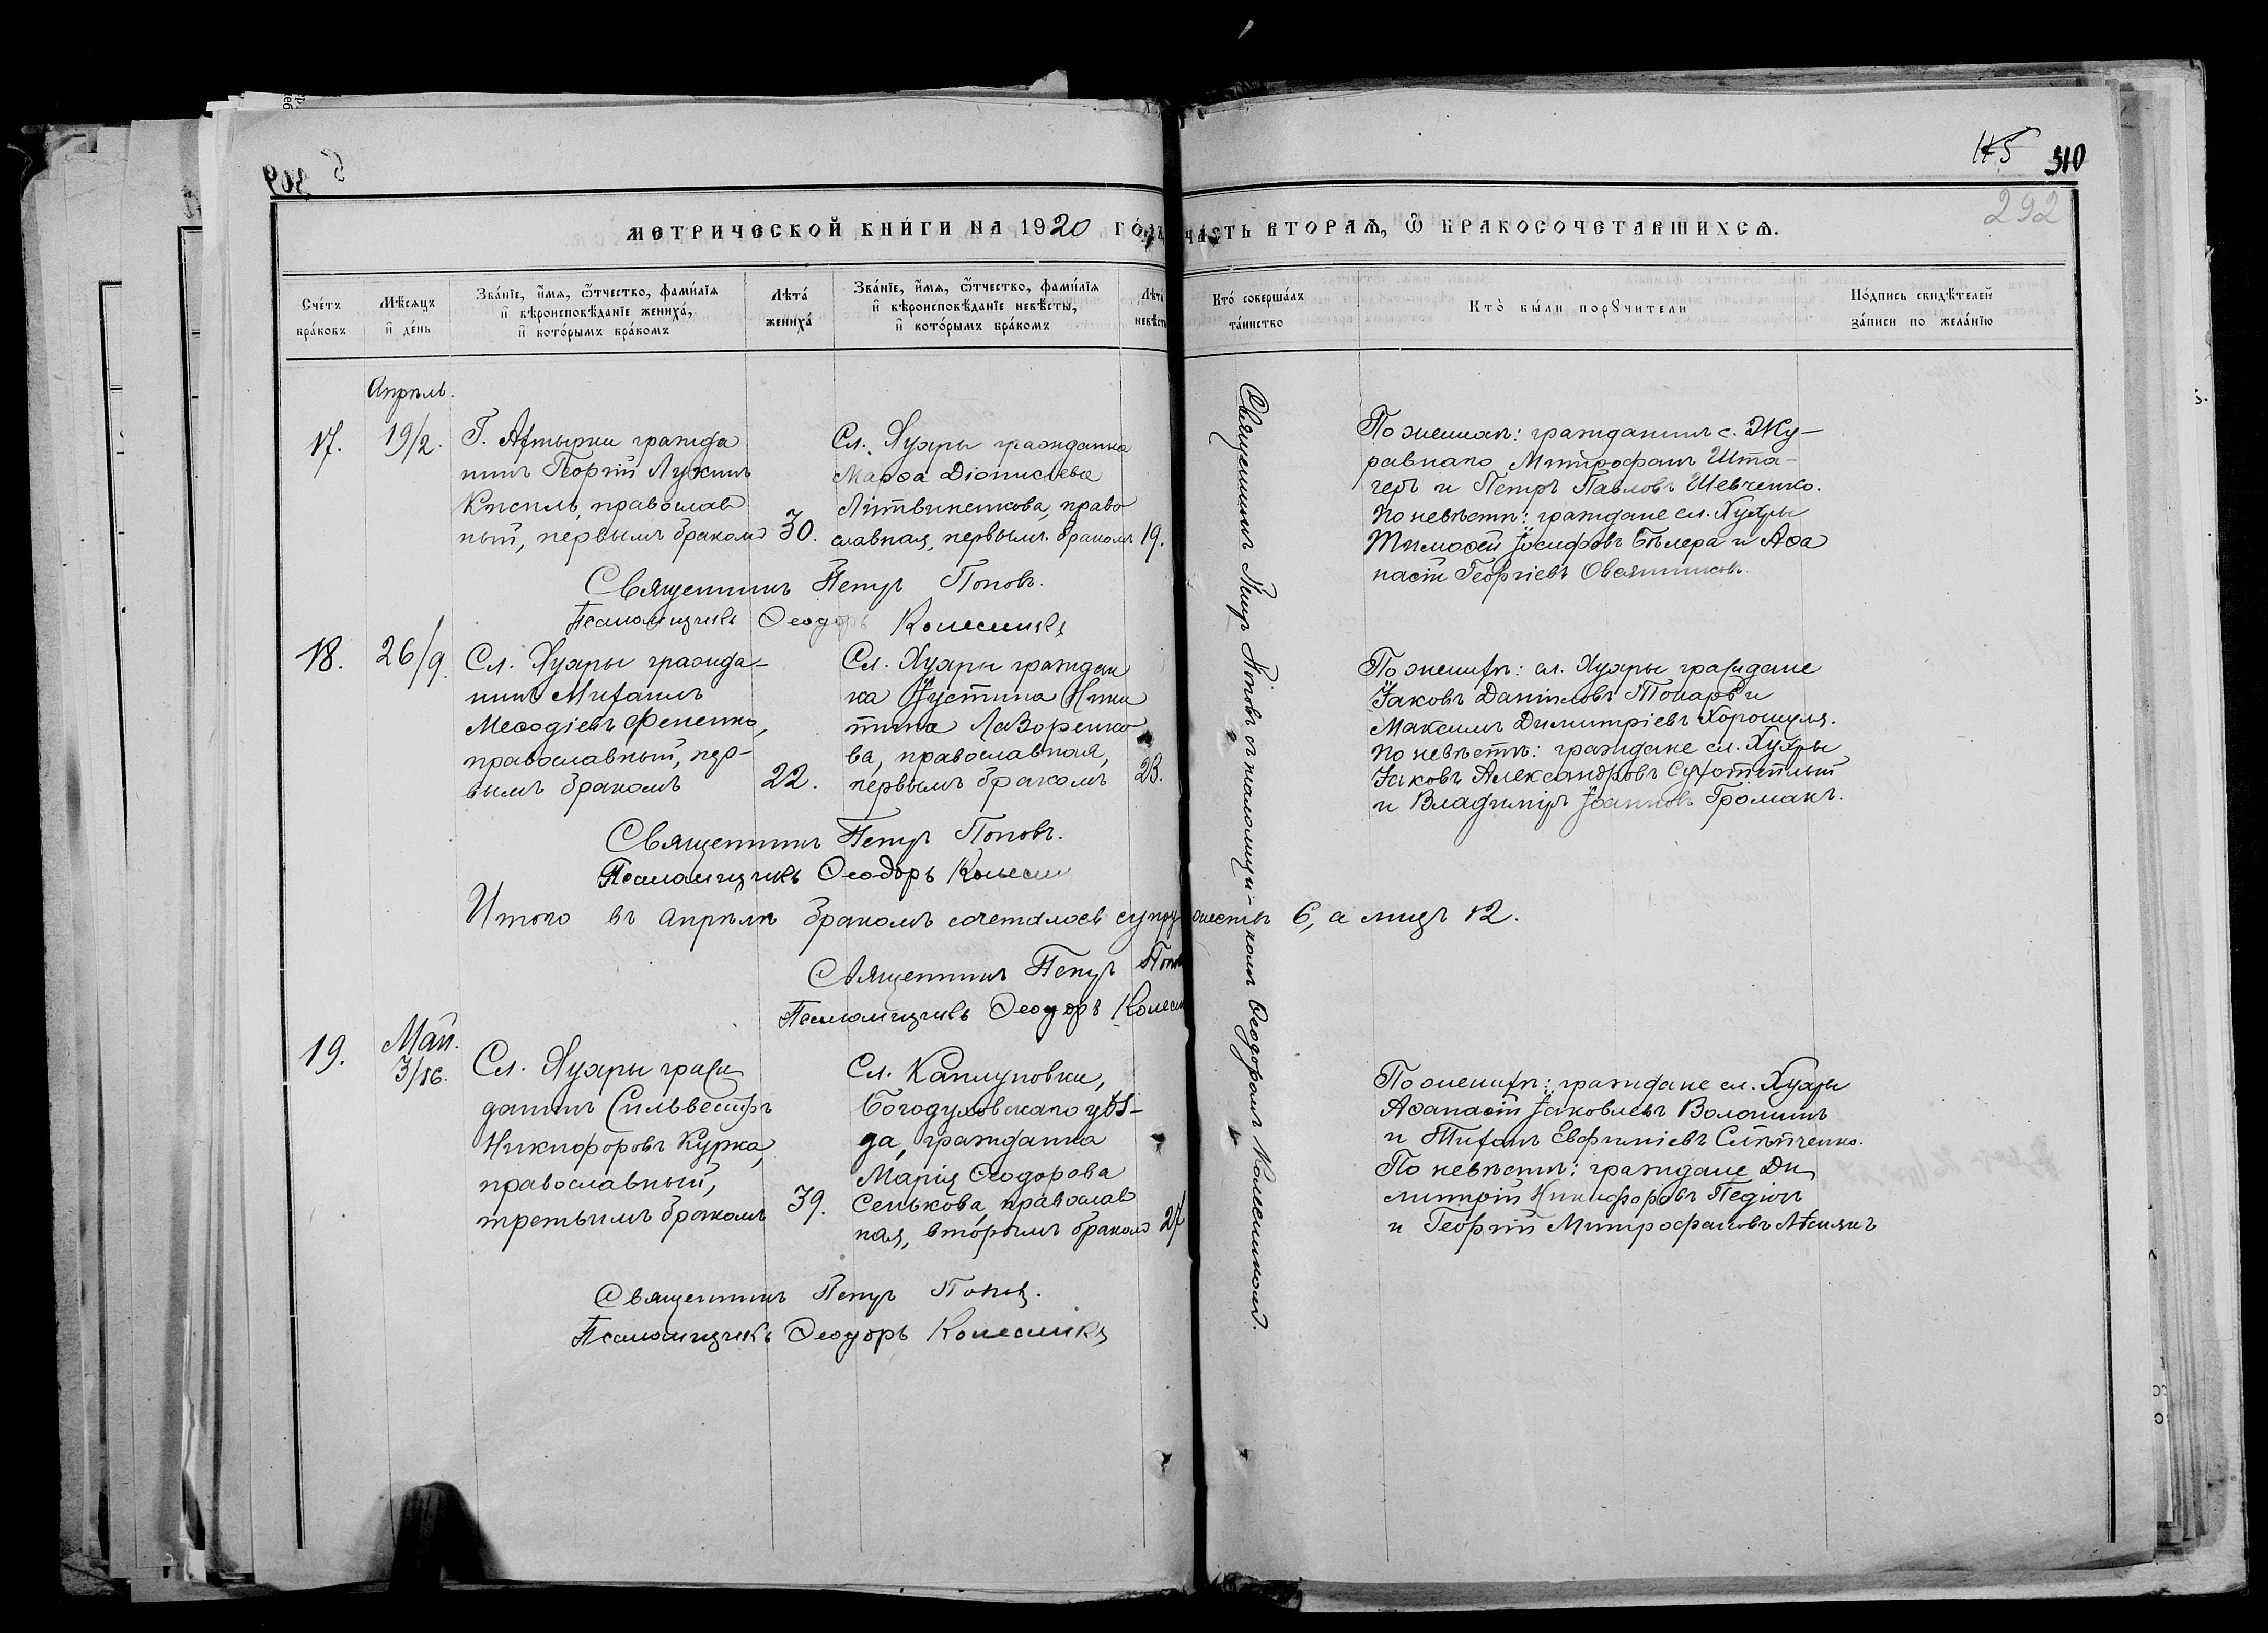 309
115
310
292
МЕТРИЧЕСКОЙ КНИ́ГИ НА 1920 ГО́ДЪ ЧАСТЬ ВТОРАѦ, Ѽ БРАКОСОЧЕТАВШИХСѦ.
Сче́тъ бра́ковъ
Мѣ́сяцъ и де́нь
Зва́нїе, и́мя, ѻ҆́тчество, фами́лїя
и вѣроисповѣ́данїе жениха́,
и кото́рымъ бра́комъ
Лѣта́ жениха́
Зва́нїе, и́мя, ѻ҆́тчество, фами́лїя
и вѣроисповѣ́данїе невѣ́сты,
и кото́рымъ бра́комъ
Лѣта́ невѣ́сты
Кто́ соверша́лъ та́инство
Кто̀ бы́ли порꙋчители
По́дпись свидѣ́телей
за́писи по жела́нїю
Апрѣль.
17.
19/2.
Г. Ахтырки гражда
нинъ Георгій Лукинъ
Кисиль, православ
ный, первымъ бракомъ
30.
Сл. Хухры гражданка
Марѳа Діонисіева
Литвиненкова, право
славная, первымъ бракомъ
19.
По женихѣ: гражданинъ с. Жу-
равнаго Митрофанъ Шта-
геръ и Петръ Павловъ Шевченко.
По невѣстѣ: граждане сл. Хухры
Тимоѳей Іосифовъ Бѣлера и Аѳа
насій Георгіевъ Овсянниковъ.
Священникъ Петръ Поповъ.
Псаломщикъ Ѳеодоръ Колесникъ
18.
26/9.
Сл. Хухры гражда-
нинъ Михаилъ
Меѳодіевъ Фененко,
православный, пер-
вымъ бракомъ
22.
Сл. Хухры граждан
ка Іустина Ники
тина Лазоренко
ва, православная,
первымъ бракомъ
23.
По женихѣ: сл. Хухры граждане
Іаковъ Даніиловъ Токарь и
Максимъ Димитріевъ Хорошуля.
По невѣстѣ: граждане сл. Хухры
Іаковъ Александровъ
и Владиміръ Іоанновъ Громакъ.
Священникъ Петръ Поповъ.
Псаломщикъ Ѳеодоръ Колесн
Итого въ апрѣлѣ бракомъ сочеталось супружествъ 6, а лицъ 12.
Священникъ Петръ Поповъ
Псаломщикъ Ѳеодоръ Колесн
Май.
19.
3/16.
Сл. Хухры граж
данинъ Сильвестръ
Никифоровъ Курка,
православный,
третьимъ бракомъ
39.
Сл. Каплуновки,
Богодуховскаго уѣз-
да, гражданка
Марія Ѳеодорова
Сенькова, православ
ная, вторымъ бракомъ
27
По женихѣ: граждане сл. Хухры
Аѳанасій Іаковлевъ Волошинъ
и Титъ Евфиміевъ
По невѣстѣ: граждане Ди
митрій Никифоровъ
и Георгій Митрофановъ
Священникъ Петръ Поповъ.
Псаломщикъ Ѳеодоръ Колесникъ
Священникъ Петръ Поповъ съ псаломщи-
комъ Ѳеодоромъ Колесникомъ.